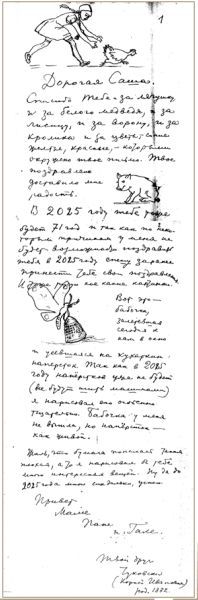 1
Дорогая Саша.
Спасибо тебе за лягушку
и за белого медведя, и за
лисицу, и за ворону, и за
кролика и за цветы, синие
желтые, красные, — которыми
окружено твое письмо. Твое
поздравление
доставило мне
радость.
В 2025 году тебе уже
будет 71 год и так как по неко-
торым причинам у меня не
будет возможности поздравить
тебя в 2025 году спешу заранее
принести тебе свои поздравления
И даже кое какие картинки.
Вот это —
бабочка,
залетевшая
сегодня к
нам в окно
и усевшаяся на
наперсток. Так как в 2025
году наперстков уже не будет
(все будут шить машинами)
я нарисовал его особенно
тщательно. Бабочка у меня
не вышла, но наперсток —
как живой.
Жаль, что бумага
плохая, а то я нарисовал бы тебе
много интересных вещей. Ну да до
2025 года много
Привет
Маме
Папе
и Гале.
Твой друг
Чуковский
(Корней Иванович)
род. 1882.